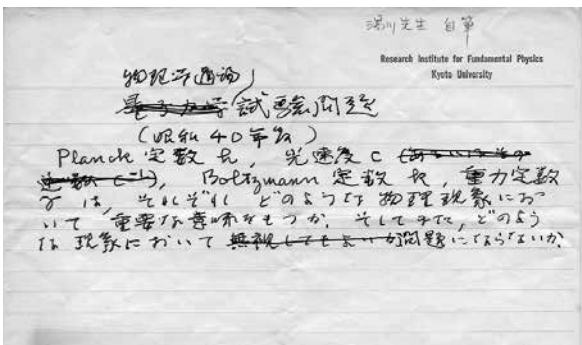 湯川先生 自筆
Research Institute for Fundamental Physics
Kyoto University
物理学通論
量子力学 試験問題
(昭和40年分)
Planck 定数 h, 光速度 c
Boltzmann 定数 k, 重力定数
γ は, それぞれ どのような 物理現象にお
いて 重要な意味をもつか. そしてまた, どのよう
な現象において 無視してもよいか問題にならないか.